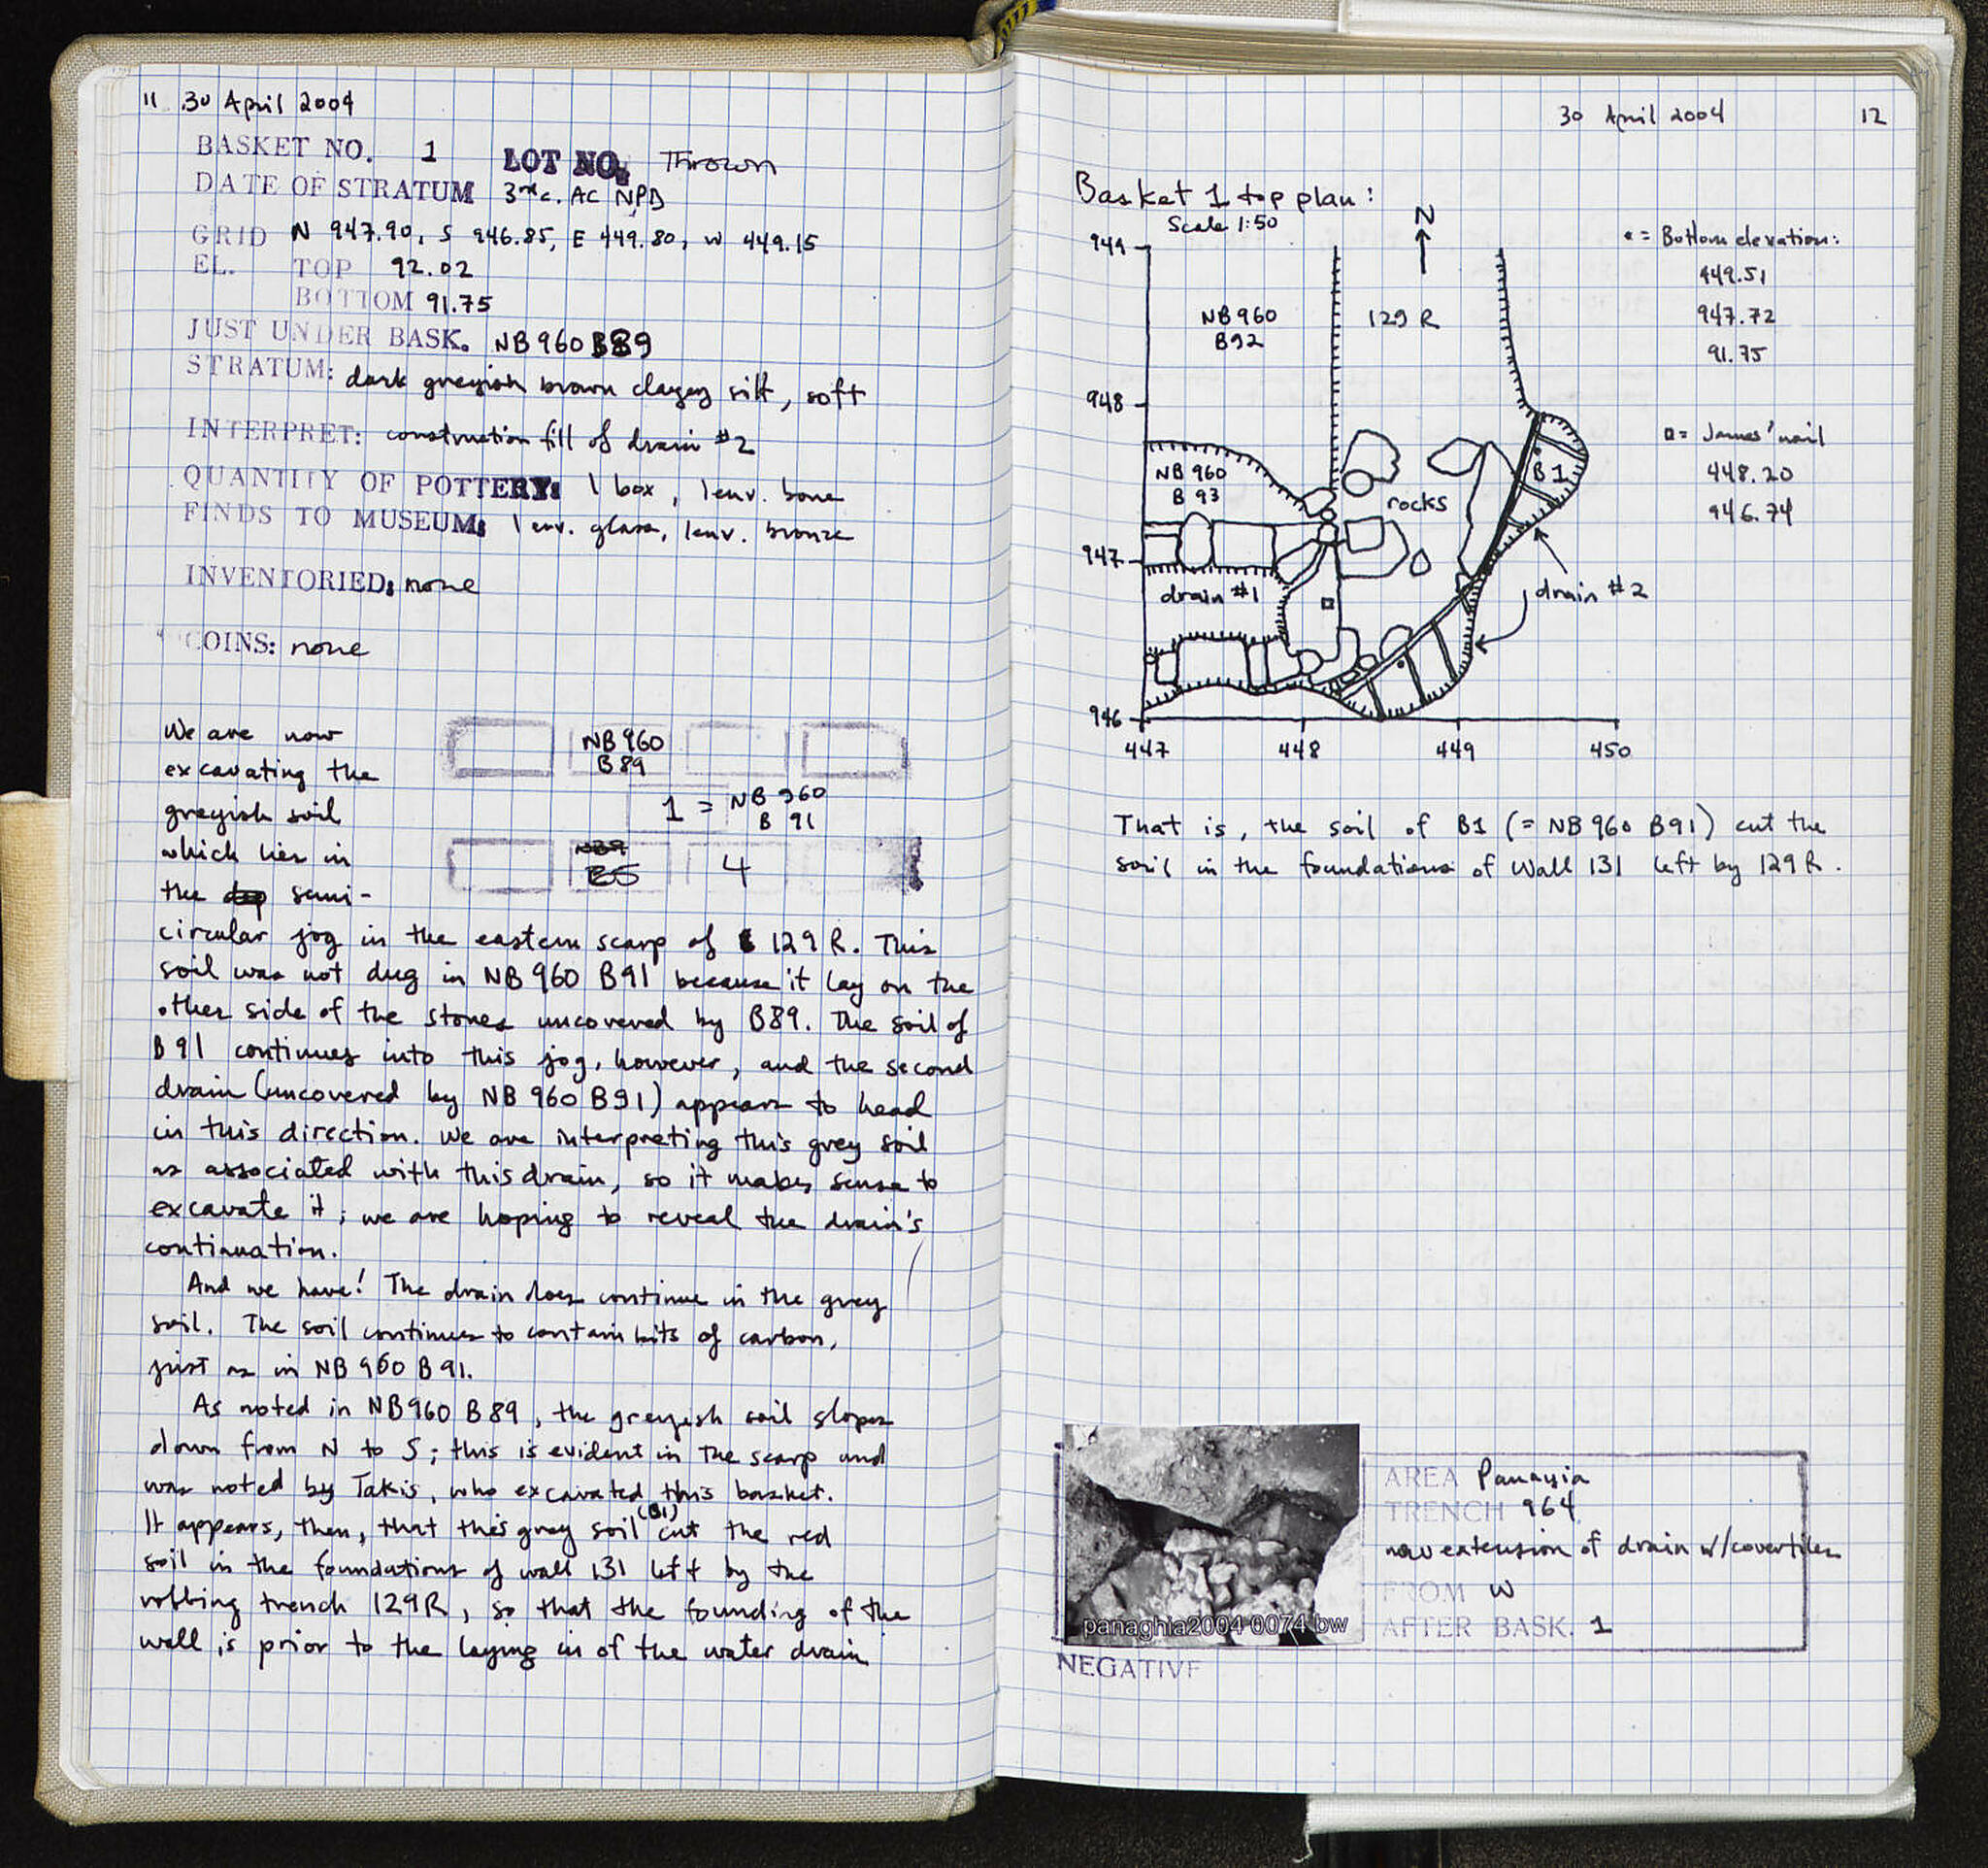 11 30 April 2004
BASKET NO. 1 LOT NO. Thrown
DATE OF STRATUM 3rd c. AC NPD
GRID N 947.90, S 946.85, E 449.80, W 449.15
EL. TOP 92.02
BOTTOM 91.75
JUST UNDER BASK. NB960 B89
STRATUM: dark greyish brown clayey silt, soft
INTERPRET: construction fill of drain #2
QUANTITY OF POTTERY: 1 box, 1 env. bone
FINDS TO MUSEUM: 1 env. glass, 1 env. bronze
INVENTORIED: none
COINS: none
NB 960
B 89
1 = NB 960
B 91
B5 4
We are now
excavating the
greyish soil
which lies in
the semi-
circular jog in the eastern scarp of 129 R. This
soil was not dug in NB 960 B91 because it lay on the
other side of the stones uncovered by B89. The soil of
B91 continues into this jog, however, and the second
drain (uncovered by NB 960 B91) appears to head
in this direction. We are interpreting this grey soil
as associated with this drain, so it makes sense to
excavate it; we are hoping to reveal the drain's
continuation.
And we have! The drain does continue in the grey
soil. The soil continues to contain bits of carbon,
just as in NB 960 B91.
As noted in NB960 B89, the greyish soil slopes
down from N to S; this is evident in the scarp and
was noted by Takis, who excavated this basket.
It appears, then, that this grey soil (B1) cut the red
soil in the foundations of wall 131 left by the
robbing trench 129R, so that the founding of the
wall is prior to the laying in of the water drain
30 April 2004 12
Basket 1 top plan:
Scale 1:50
N
949
948
947
946
447 448 449 450
NB 960
B92
129 R
NB 960
B 93
rocks
B1
drain #1
drain #2
• = Bottom elevation:
449.51
947.72
91.75
□ = James' nail
448.20
946.74
That is, the soil of B1 (= NB 960 B91) cut the
soil in the foundations of Wall 131 left by 129R.
panaghia2004 0074 bw
NEGATIVE
AREA Panayia
TRENCH 964
new extension of drain w/covertiles
FROM W
AFTER BASK. 1